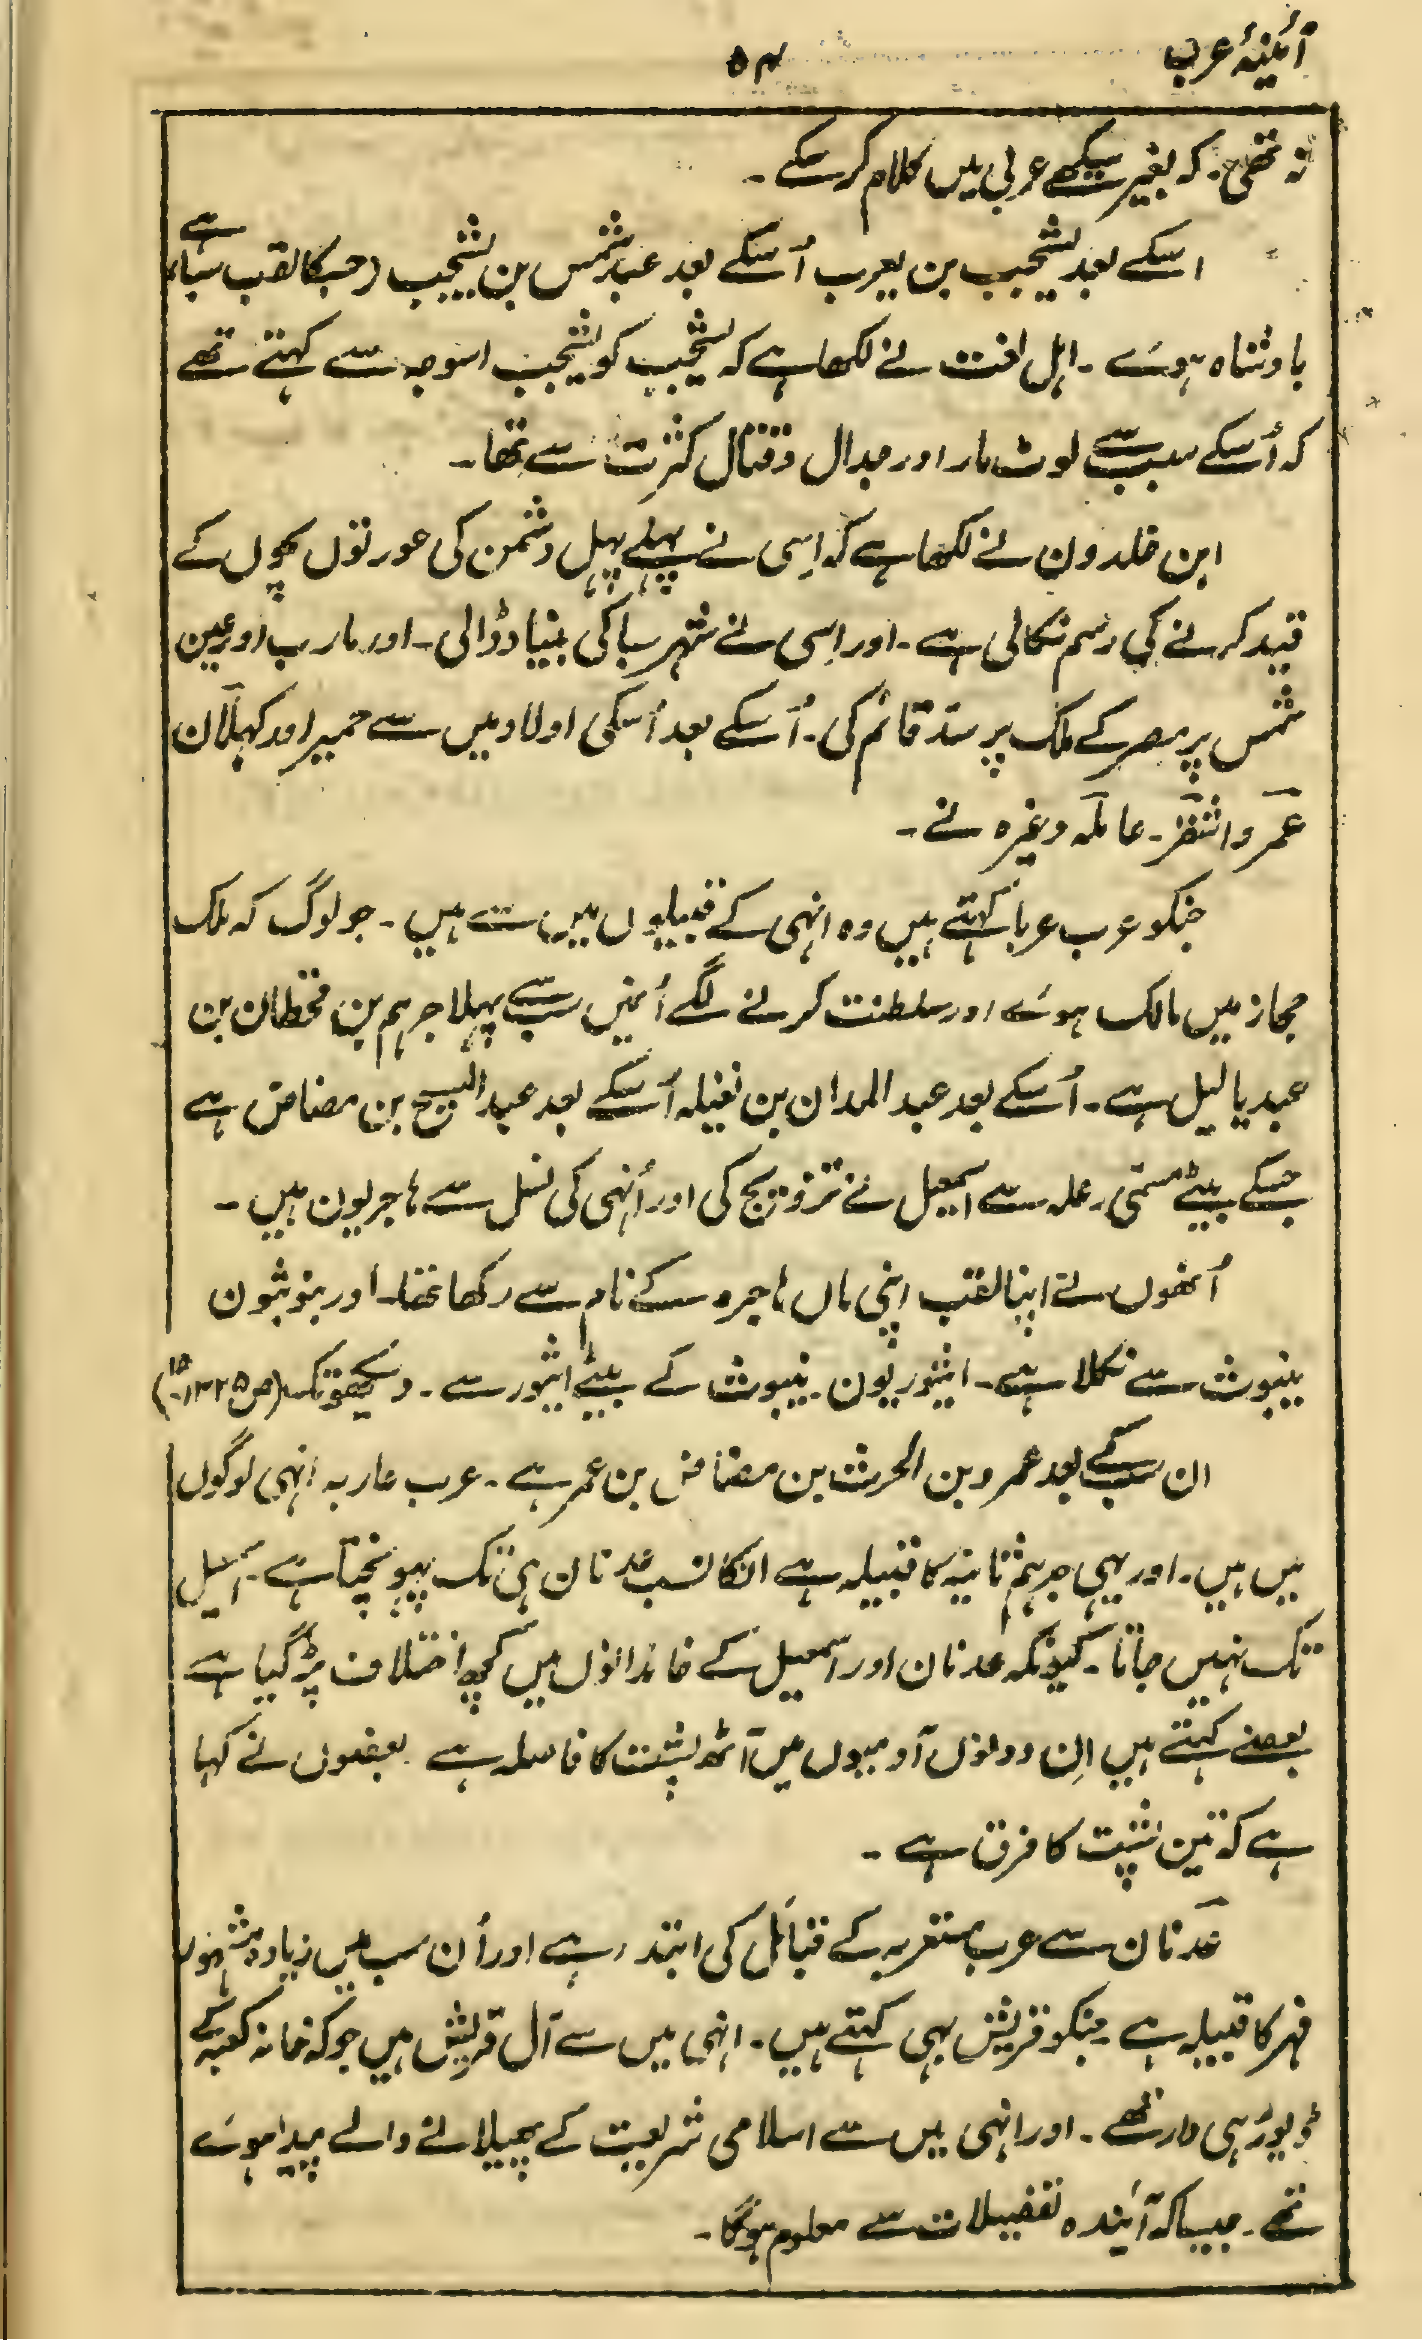 آئینۂ عرب
۵۴
نہ تھی۔ کہ بغیر سیکھے عربی میں کلام کر سکے۔
اسکے بعد یشجیب بن یعرب اُسکے بعد عبد شمس بن یشجیب (جسکا لقب سبا ہے
بادشاہ ہوئے۔ اہل لغت نے لکھا ہے کہ یشجیب کو یشجیب اسوجہ سے کہتے تھے
کہ اُسکے سبب سے لوٹ مار اور جدال و قتال کثرت سے تھا۔
ابن خلدون نے لکھا ہے کہ اِسی نے پہلے پہل دشمن کی عورتوں بچوں کے
قید کرنے کی رسم نکالی ہے۔ اور اِسی نے شہر سبا کی بنیاد ڈالی۔ اور مارب اور عین
شمس پر مصر کے ملک پر سدّ قائم کی۔ اُسکے بعد اُسکی اولاد میں سے حمیر اور کہلان
عمرو اشقر۔ عاملہ وغیرہ نے۔
جنکو عرب عربا کہتے ہیں وہ انہی کے قبیلوں میں سے ہیں۔ جو لوگ کہ ملک
حجاز میں مالک ہوئے اور سلطنت کرنے لگے اُنمیں سب سے پہلا جرہم بن قحطان بن
عبد یا لیل ہے۔ اُسکے بعد عبد المدان بن نفیلہ اُسکے بعد عبد المسیح بن مضاض ہے
جسکے بیٹے مسمّی رعلہ سے اسمٰعیل نے تزویج کی اور اُنہی کی نسل سے ہاجریون ہیں۔
اُنھوں نے اپنا لقب اپنی ماں ہاجرہ کے نام سے رکھا تھا۔ اور بنوبثون
بینوث سے نکلا ہے۔ ایثوریون۔ بنیوث کے بیٹے ایثور سے۔ دیکھو تک (ص ۱۳۲۵، ۱۵)
ان سب کے بعد عمرو بن الحرث بن مضاض بن عمر ہے۔ عرب عاربہ انہی لوگوں
میں ہیں۔ اور یہی جرہم ثانیہ کا قبیلہ ہے انکا نسب عدنان ہی تک پہونچتا ہے۔ اسمٰعیل
تک نہیں جاتا۔ کیونکہ عدنان اور اسمعیل کے خاندانوں میں کچھ اختلاف پڑ گیا ہے
بعضے کہتے ہیں اِن دونوں آدمیوں میں آٹھ پشت کا فاصلہ ہے۔ بعضوں نے کہا
ہے کہ تین پشت کا فرق ہے۔
عدنان سے عرب مستعربہ کے قبائل کی ابتدا ہے اور اُن سب میں زیادہ مشہور
فہر کا قبیلہ ہے۔ جنکو قریش بھی کہتے ہیں۔ انہی میں سے آل قریش ہیں جو کہ خانہ کعبہ کے
ڈیوڑھی دار تھے۔ اور انہی میں سے اسلامی شریعت کے پھیلانے والے پیدا ہوئے
تھے۔ جیسا کہ آیندہ تفضیلات سے معلوم ہوگا۔